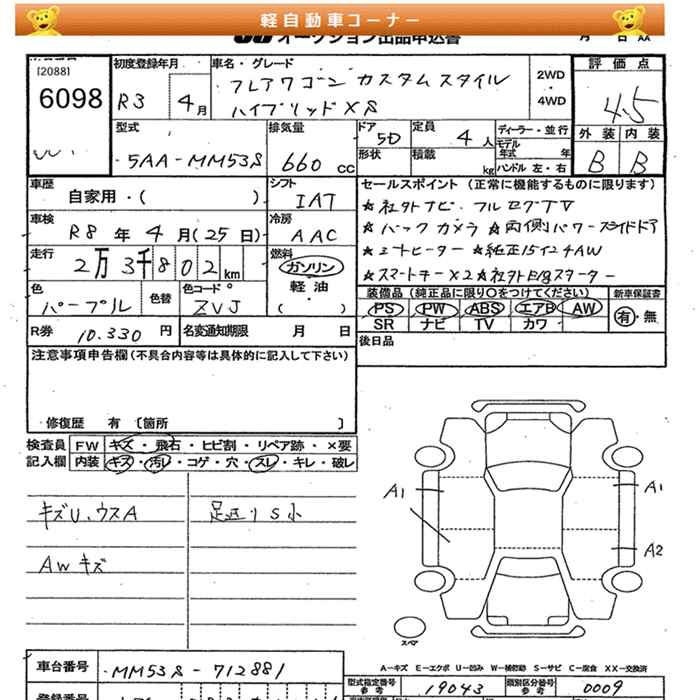 軽自動車コーナー
オークション出品申込書
月 日 AA
[2088]
6098
初度登録年月
R3 4月
車名・グレード
フレアワゴン カスタムスタイル
ハイブリッドXS
2WD
・
4WD
評価点
4.5
外装 内装
B B
型式
5AA-MM53S
排気量
660 CC
ドア
5D
定員
4人
形状
積載
kg
ディーラー・並行
モデル年式 年
ハンドル 左・右
車歴
自家用・( )
シフト
IAT
車検
R8年4月(25日)
冷房
AAC
走行
2万3千802km
燃料
ガソリン
軽油
( )
色
パープル
色替
色コード
ZVJ
R券
10.330円
名変通知期限 月 日
セールスポイント (正常に機能するものに限ります)
★社外ナビ・フルセグTV
★バックカメラ ★両側パワースライドドア
★シートヒーター ★純正15インチAW
★スマートキー×2 ★社外E/gスターター
装備品 (純正品に限り〇をつけてください)
PS PW ABS エアB AW
SR ナビ TV カワ
新車保証書
有・無
後日品
注意事項申告欄 (不具合内容等は具体的に記入して下さい)
修復歴 有 〔箇所 〕
検査員記入欄
FW キズ・飛石・ヒビ割・リペア跡・×要
内装 キズ・汚レ・コゲ・穴・スレ・キレ・破レ
キズU、ウスA
足廻りS小
AWキズ
A1
A1
A2
スペア
A-キズ E-エクボ U-凹み W-補修跡 S-サビ C-腐食 XX-交換済
車台番号
MM53S-712881
型式指定番号
参考
19043
類別区分番号
参考
0009
登録番号